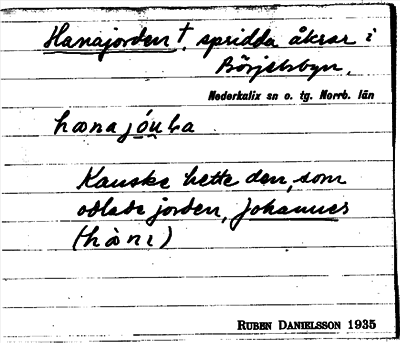 Hanajorden † spridda åkrar i
Börjelsbyn.
Nederkalix sn o. tg. Norrb. län
Kanske hette den, som
odlade jorden, Johannes
(hànɩ)
RUBEN DANIELSSON 1935